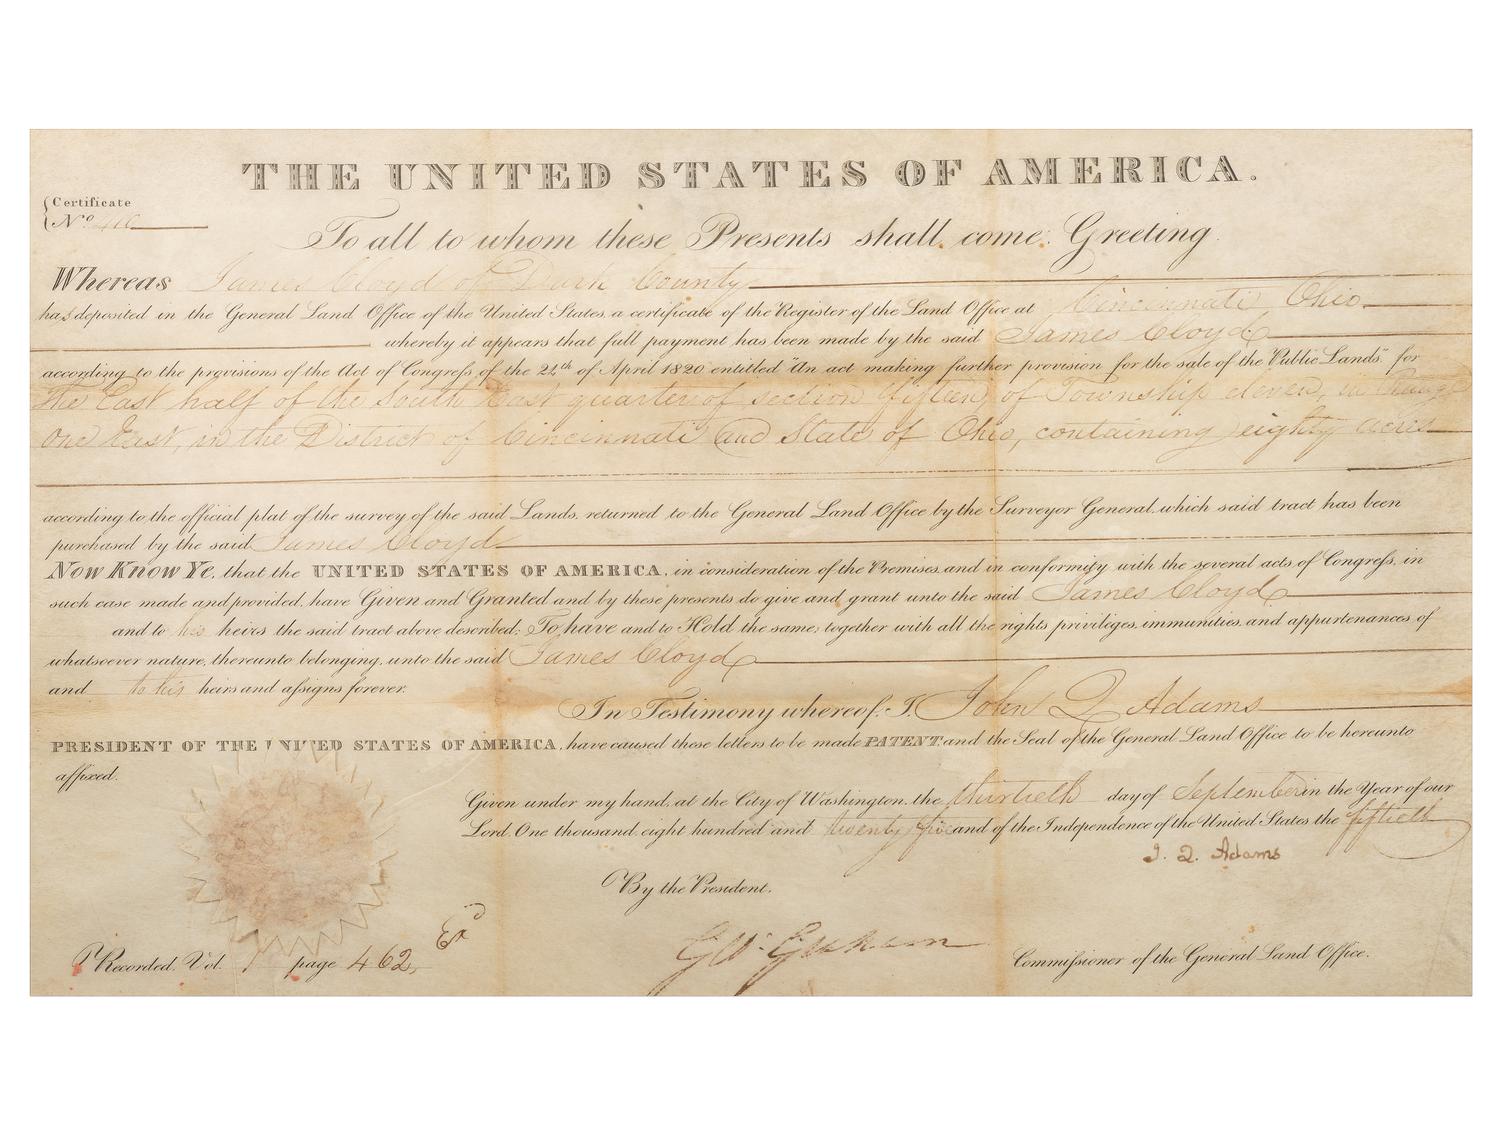 THE UNITED STATES OF AMERICA.
Certificate
No 410
To all to whom these Presents shall come: Greeting.
Whereas James Cloyd of Dark County
has deposited in the General Land Office of the United States, a certificate of the Register of the Land Office at Cincinnati Ohio
whereby it appears that full payment has been made by the said James Cloyd
according to the provisions of the Act of Congress, of the 24th of April 1820 entitled "An act making further provision for the sale of the Public Lands", for
the East half of the South East quarter of section fifteen, of Township eleven, in Range
One East, in the District of Cincinnati and State of Ohio, containing eighty acres
according to the official plat of the survey of the said Lands, returned to the General Land Office by the Surveyor General, which said tract has been
purchased by the said James Cloyd
Now Know Ye, that the UNITED STATES OF AMERICA, in consideration of the Premises, and in conformity with the several acts of Congress, in
such case made and provided, have Given and Granted and by these presents do give and grant unto the said James Cloyd
and to his heirs the said tract above described; To have and to Hold the same, together with all the rights privileges, immunities, and appurtenances of
whatsoever nature, thereunto belonging, unto the said James Cloyd
and to his heirs and assigns forever.
In Testimony whereof, I, John Q Adams
PRESIDENT OF THE UNITED STATES OF AMERICA, have caused these letters to be made PATENT, and the Seal of the General Land Office to be hereunto
affixed.
Given under my hand, at the City of Washington, the thirtieth day of September in the Year of our
Lord, One thousand, eight hundred and twenty five and of the Independence of the United States the fiftieth
J. Q. Adams
By the President.
Recorded, Vol. 1 page 462,
G W. Graham
Commissioner of the General Land Office.